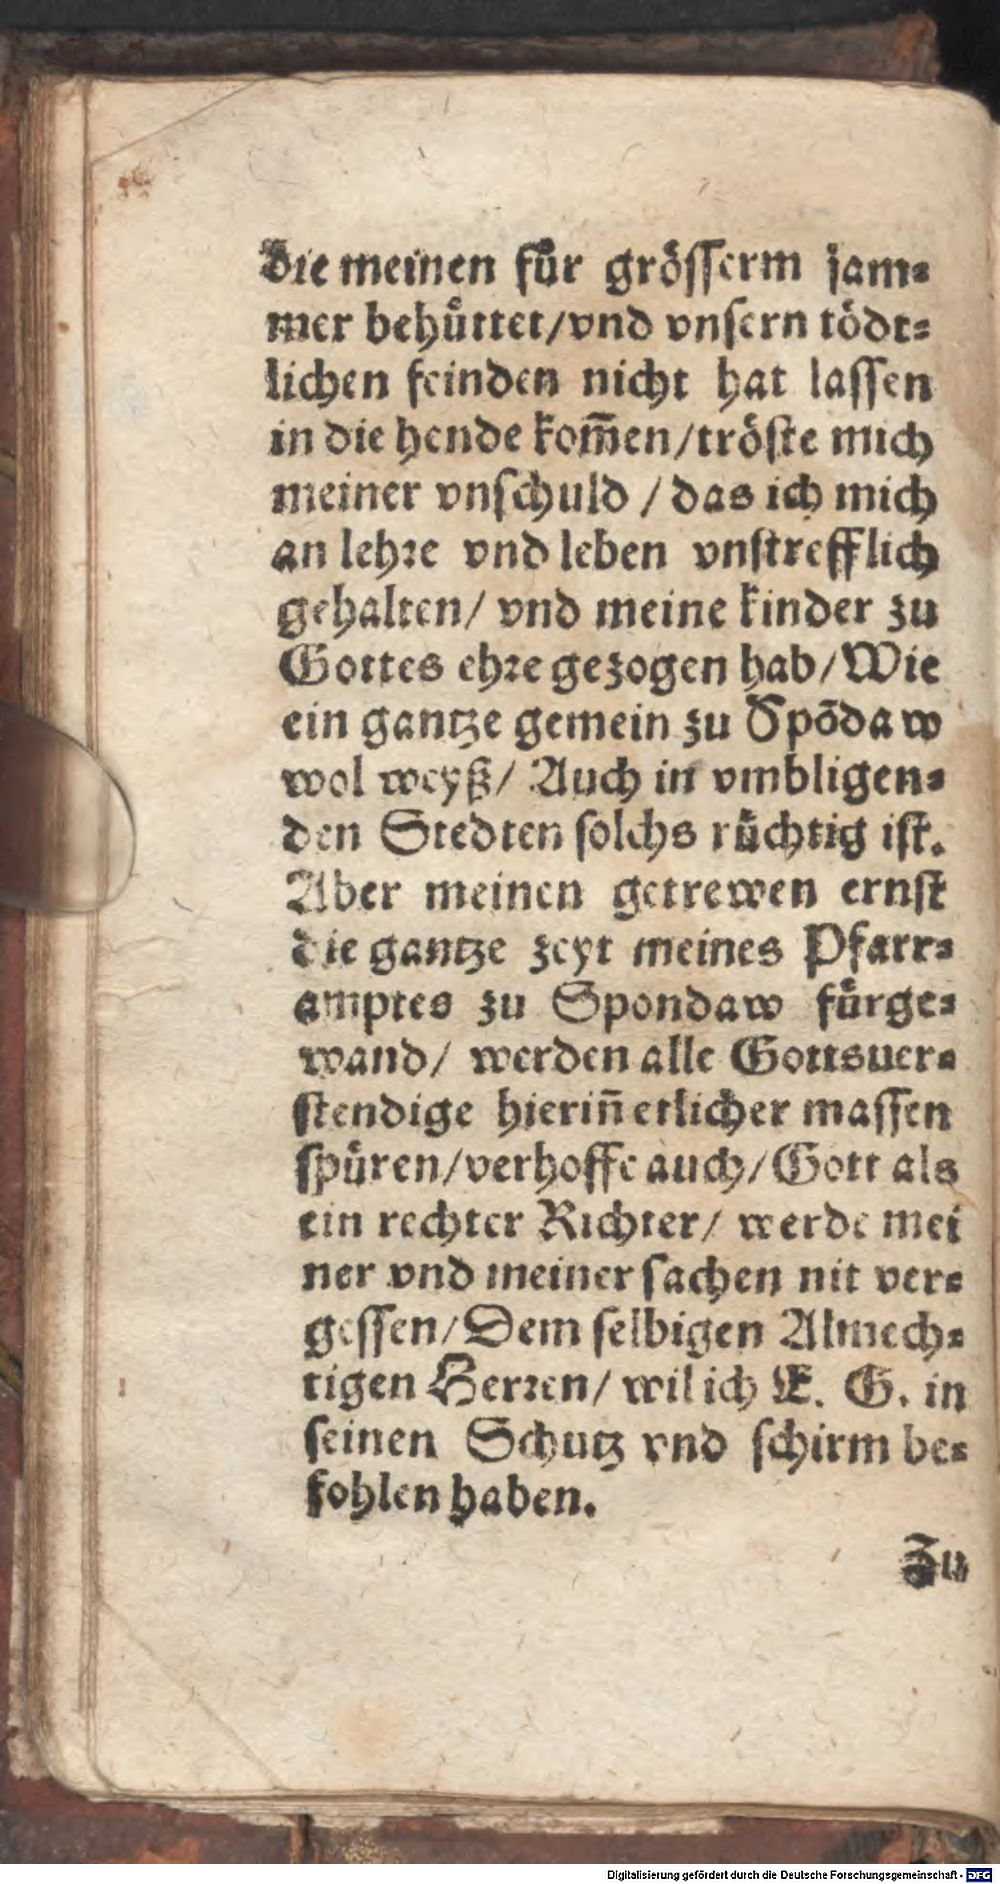 die meinen fuͤr groͤsserm jam⸗
mer behuͤttet/vnd vnsern toͤdt⸗
lichen feinden nicht hat lassen
in die hende kom̄en/troͤste mich
meiner vnschuld / das ich mich
an lehre vnd leben vnstrefflich
gehalten/ vnd meine kinder zu
Gottes ehre gezogen hab/Wie
ein gantze gemein zu Spōdaw
wol weyß/ Auch in vmbligen⸗
den Stedten solchs ruͤchtig ist.
Aber meinen getrewen ernst
die gantze zeyt meines Pfarr⸗
amptes zu Spondaw fuͤrge⸗
wand/ werden alle Gottsuer⸗
stendige hierin̄ etlicher massen
spuͤren/verhoffe auch/Gott als
ein rechter Richter/ werde mei
ner vnd meiner sachen nit ver⸗
gessen/Dem selbigen Almech⸗
tigen Herren/ wil ich E. G. in
seinen Schutz vnd schirm be⸗
fohlen haben.
Zu
Digitalisierung gefördert durch die Deutsche Forschungsgemeinschaft - DFG